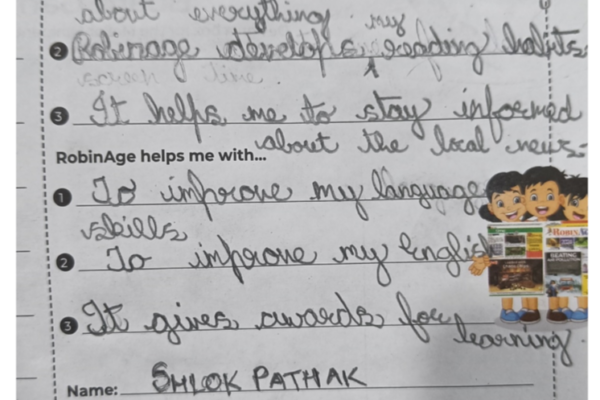 about everything
② Robinage develops my reading habits
screen time.
③ It helps me to stay informed
about the local news.
RobinAge helps me with...
① To improve my language
skills
② To improve my English
③ It gives awards for
learning.
Name: SHLOK PATHAK